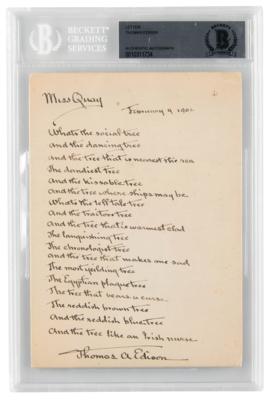 BECKETT®
GRADING
SERVICES
LETTER
THOMAS EDISON
AUTHENTIC AUTOGRAPH
BECKETT
Miss Quay
February 9, 1902
Whats the social tree
And the dancing tree
And the tree that is nearest the sea
The dandiest tree
And the kissable tree
And the tree where ships may be
Whats the tell tale tree
And the traitors tree
And the tree that is warmest clad
The languishing tree
The chronologist tree
and the tree that makes one sad
The most yielding tree
The Egyptian plague tree
The tree that bears a curse
The reddish brown tree
And the reddish blue tree
And the tree like an Irish nurse
Thomas A Edison